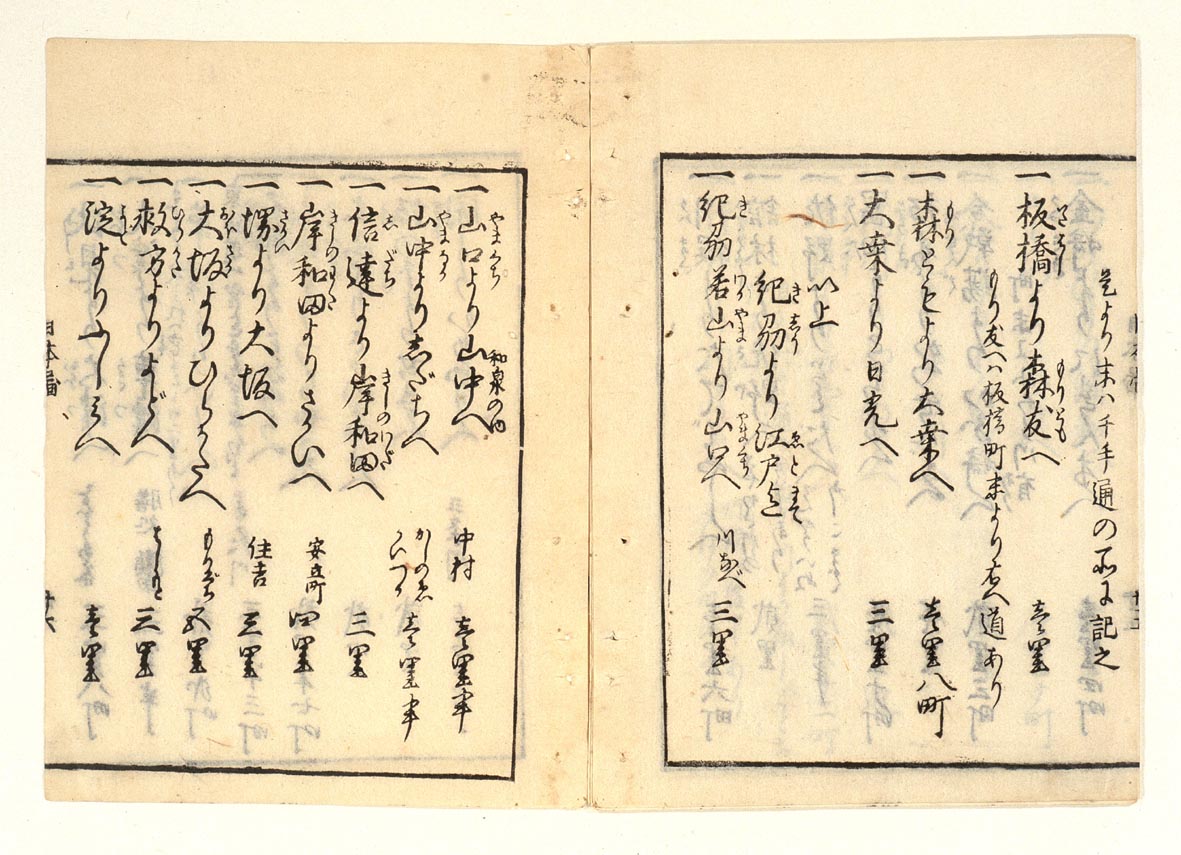 是より末ハ千手通の所に記之
一 板橋より森友へ 壱里
もり友へハ板橋町末より右へ道あり
一 森ともより大桑へ 壱里八町
一 大桑より日光へ 三里
以上
紀刕より江戸迄
一 紀刕若山より山口へ 川なべ 三里
一 山口より山中へ 和泉の内 中村 壱里半
一 山中より志だちへ 壱里半
一 信達より岸和田へ 三里
一 岸和田よりさかいへ 安立町 四里
一 堺より大坂へ 住吉 三里
一 大坂よりひらかたへ もりぐち 五里
一 枚方よりよどへ はしもと 三里
一 淀よりふしミへ 壱里